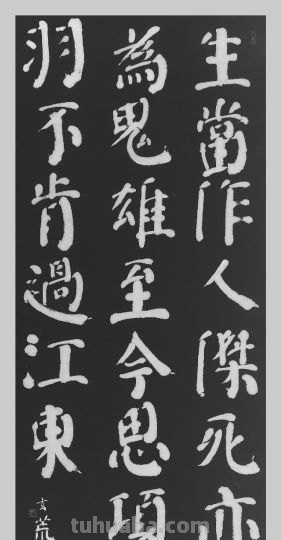 生當作人傑死亦
為鬼雄至今思項
羽不肯過江東
玄荒
tuhuaba.com